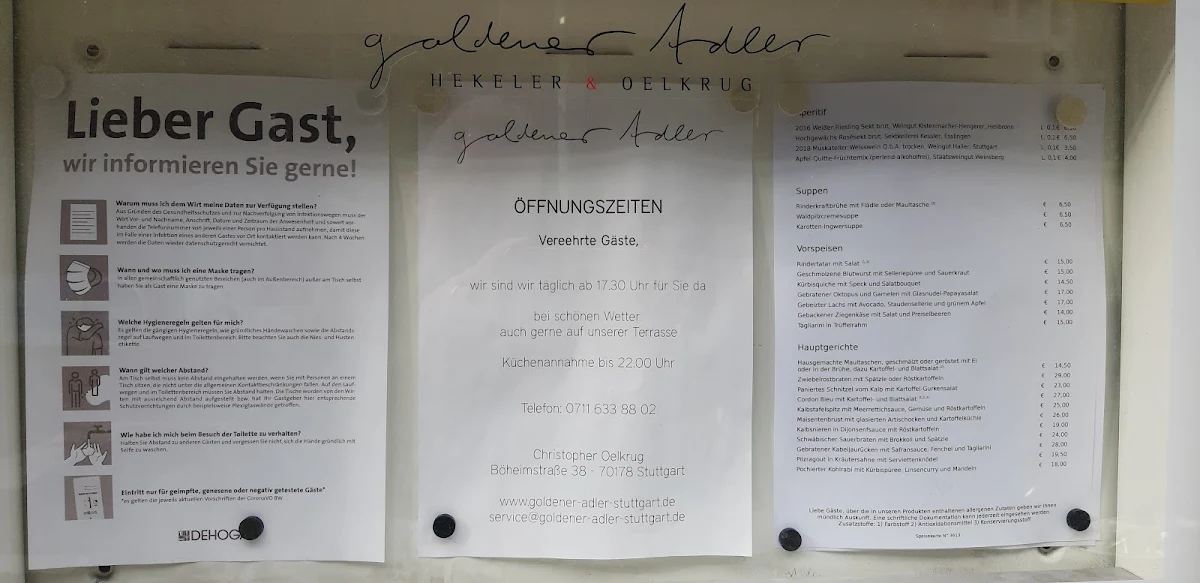 goldener Adler
HEKELER & OELKRUG
Lieber Gast,
wir informieren Sie gerne!
Warum muss ich dem Wirt meine Daten zur Verfügung stellen?
Aus Gründen des Gesundheitsschutzes und zur Nachverfolgung von Infektionswegen muss der
Wirt Vor- und Nachname, Anschrift, Datum und Zeitraum der Anwesenheit und soweit vor-
handen die Telefonnummer von jeweils einer Person pro Hausstand aufnehmen, damit diese
im Falle einer Infektion eines anderen Gastes vor Ort kontaktiert werden kann. Nach 4 Wochen
werden die Daten wieder datenschutzgerecht vernichtet.
Wann und wo muss ich eine Maske tragen?
In allen gemeinschaftlich genutzten Bereichen (auch im Außenbereich) außer am Tisch selbst
haben Sie als Gast eine Maske zu tragen.
Welche Hygieneregeln gelten für mich?
Es gelten die gängigen Hygieneregeln, wie gründliches Händewaschen sowie die Abstands-
regel auf Laufwegen und im Toilettenbereich. Bitte beachten Sie auch die Nies- und Husten-
etikette.
Wann gilt welcher Abstand?
Am Tisch selbst muss kein Abstand eingehalten werden, wenn Sie mit Personen an einem
Tisch sitzen, die nicht unter die allgemeinen Kontaktbeschränkungen fallen. Auf den Lauf-
wegen und im Toilettenbereich müssen Sie Abstand halten. Die Tische werden von den Wir-
ten mit ausreichend Abstand aufgestellt bzw. hat Ihr Gastgeber hier entsprechende
Schutzvorrichtungen durch beispielsweise Plexiglaswände getroffen.
Wie habe ich mich beim Besuch der Toilette zu verhalten?
Halten Sie Abstand zu anderen Gästen und vergessen Sie nicht, sich die Hände gründlich mit
Seife zu waschen.
Eintritt nur für geimpfte, genesene oder negativ getestete Gäste*
*es gelten die jeweils aktuellen Vorschriften der CoronaVO BW
DEHOG
goldener Adler
ÖFFNUNGSZEITEN
Vereehrte Gäste,
wir sind wir täglich ab 17.30 Uhr für Sie da
bei schönen Wetter
auch gerne auf unserer Terrasse
Küchenannahme bis 22.00 Uhr
Telefon: 0711 633 88 02
Christopher Oelkrug
Böheimstraße 38 - 70178 Stuttgart
www.goldener-adler-stuttgart.de
service@goldener-adler-stuttgart.de
peritif
2016 Weißer Riesling Sekt brut, Weingut Kistenmacher-Hengerer, Heilbronn L. 0,1 €
Hochgewächs Rosésekt brut, Sektkellerei Kessler, Esslingen L. 0,1 € 6,50
2018 Muskateller Weisswein Q.b.A. trocken, Weingut Haller, Stuttgart L. 0,1 € 3,50
Apfel-Quitte-Früchtemix (perlend-alkoholfrei), Staatsweingut Weinsberg L. 0,1 € 4,00
Suppen
Rinderkraftbrühe mit Flädle oder Maultasche € 6,50
Waldpilzcremesuppe € 6,50
Karotten-Ingwersuppe € 6,50
Vorspeisen
Rindertatar mit Salat € 15,00
Geschmolzene Blutwurst mit Selleriepüree und Sauerkraut € 15,00
Kürbisquiche mit Speck und Salatbouquet € 14,50
Gebratener Oktopus und Garnelen mit Glasnudel-Papayasalat € 17,00
Gebeizter Lachs mit Avocado, Staudensellerie und grünem Apfel € 17,00
Gebackener Ziegenkäse mit Salat und Preiselbeeren € 14,00
Tagliarini in Trüffelrahm € 15,00
Hauptgerichte
Hausgemachte Maultaschen, geschmälzt oder geröstet mit Ei
oder in der Brühe, dazu Kartoffel- und Blattsalat € 14,50
Zwiebelrostbraten mit Spätzle oder Röstkartoffeln € 29,00
Paniertes Schnitzel vom Kalb mit Kartoffel-Gurkensalat € 23,00
Cordon Bleu mit Kartoffel- und Blattsalat € 27,00
Kalbstafelspitz mit Meerrettichsauce, Gemüse und Röstkartoffeln € 25,00
Maisentenbrust mit glasierten Artischocken und Kartoffelküchle € 26,00
Kalbsnieren in Dijonsenfsauce mit Röstkartoffeln € 19,00
Schwäbischer Sauerbraten mit Brokkoli und Spätzle € 24,00
Gebratener Kabeljaurücken mit Safransauce, Fenchel und Tagliarini € 28,00
Pilzragout in Kräutersahne mit Serviettenknödel € 19,50
Pochierter Kohlrabi mit Kürbispüree, Linsencurry und Mandeln € 18,00
Liebe Gäste, über die in unseren Produkten enthaltenen allergenen Zutaten geben wir Ihnen
mündlich Auskunft. Eine schriftliche Dokumentation kann jederzeit eingesehen werden
Zusatzstoffe: 1) Farbstoff 2) Antioxidationsmittel 3) Konservierungsstoff